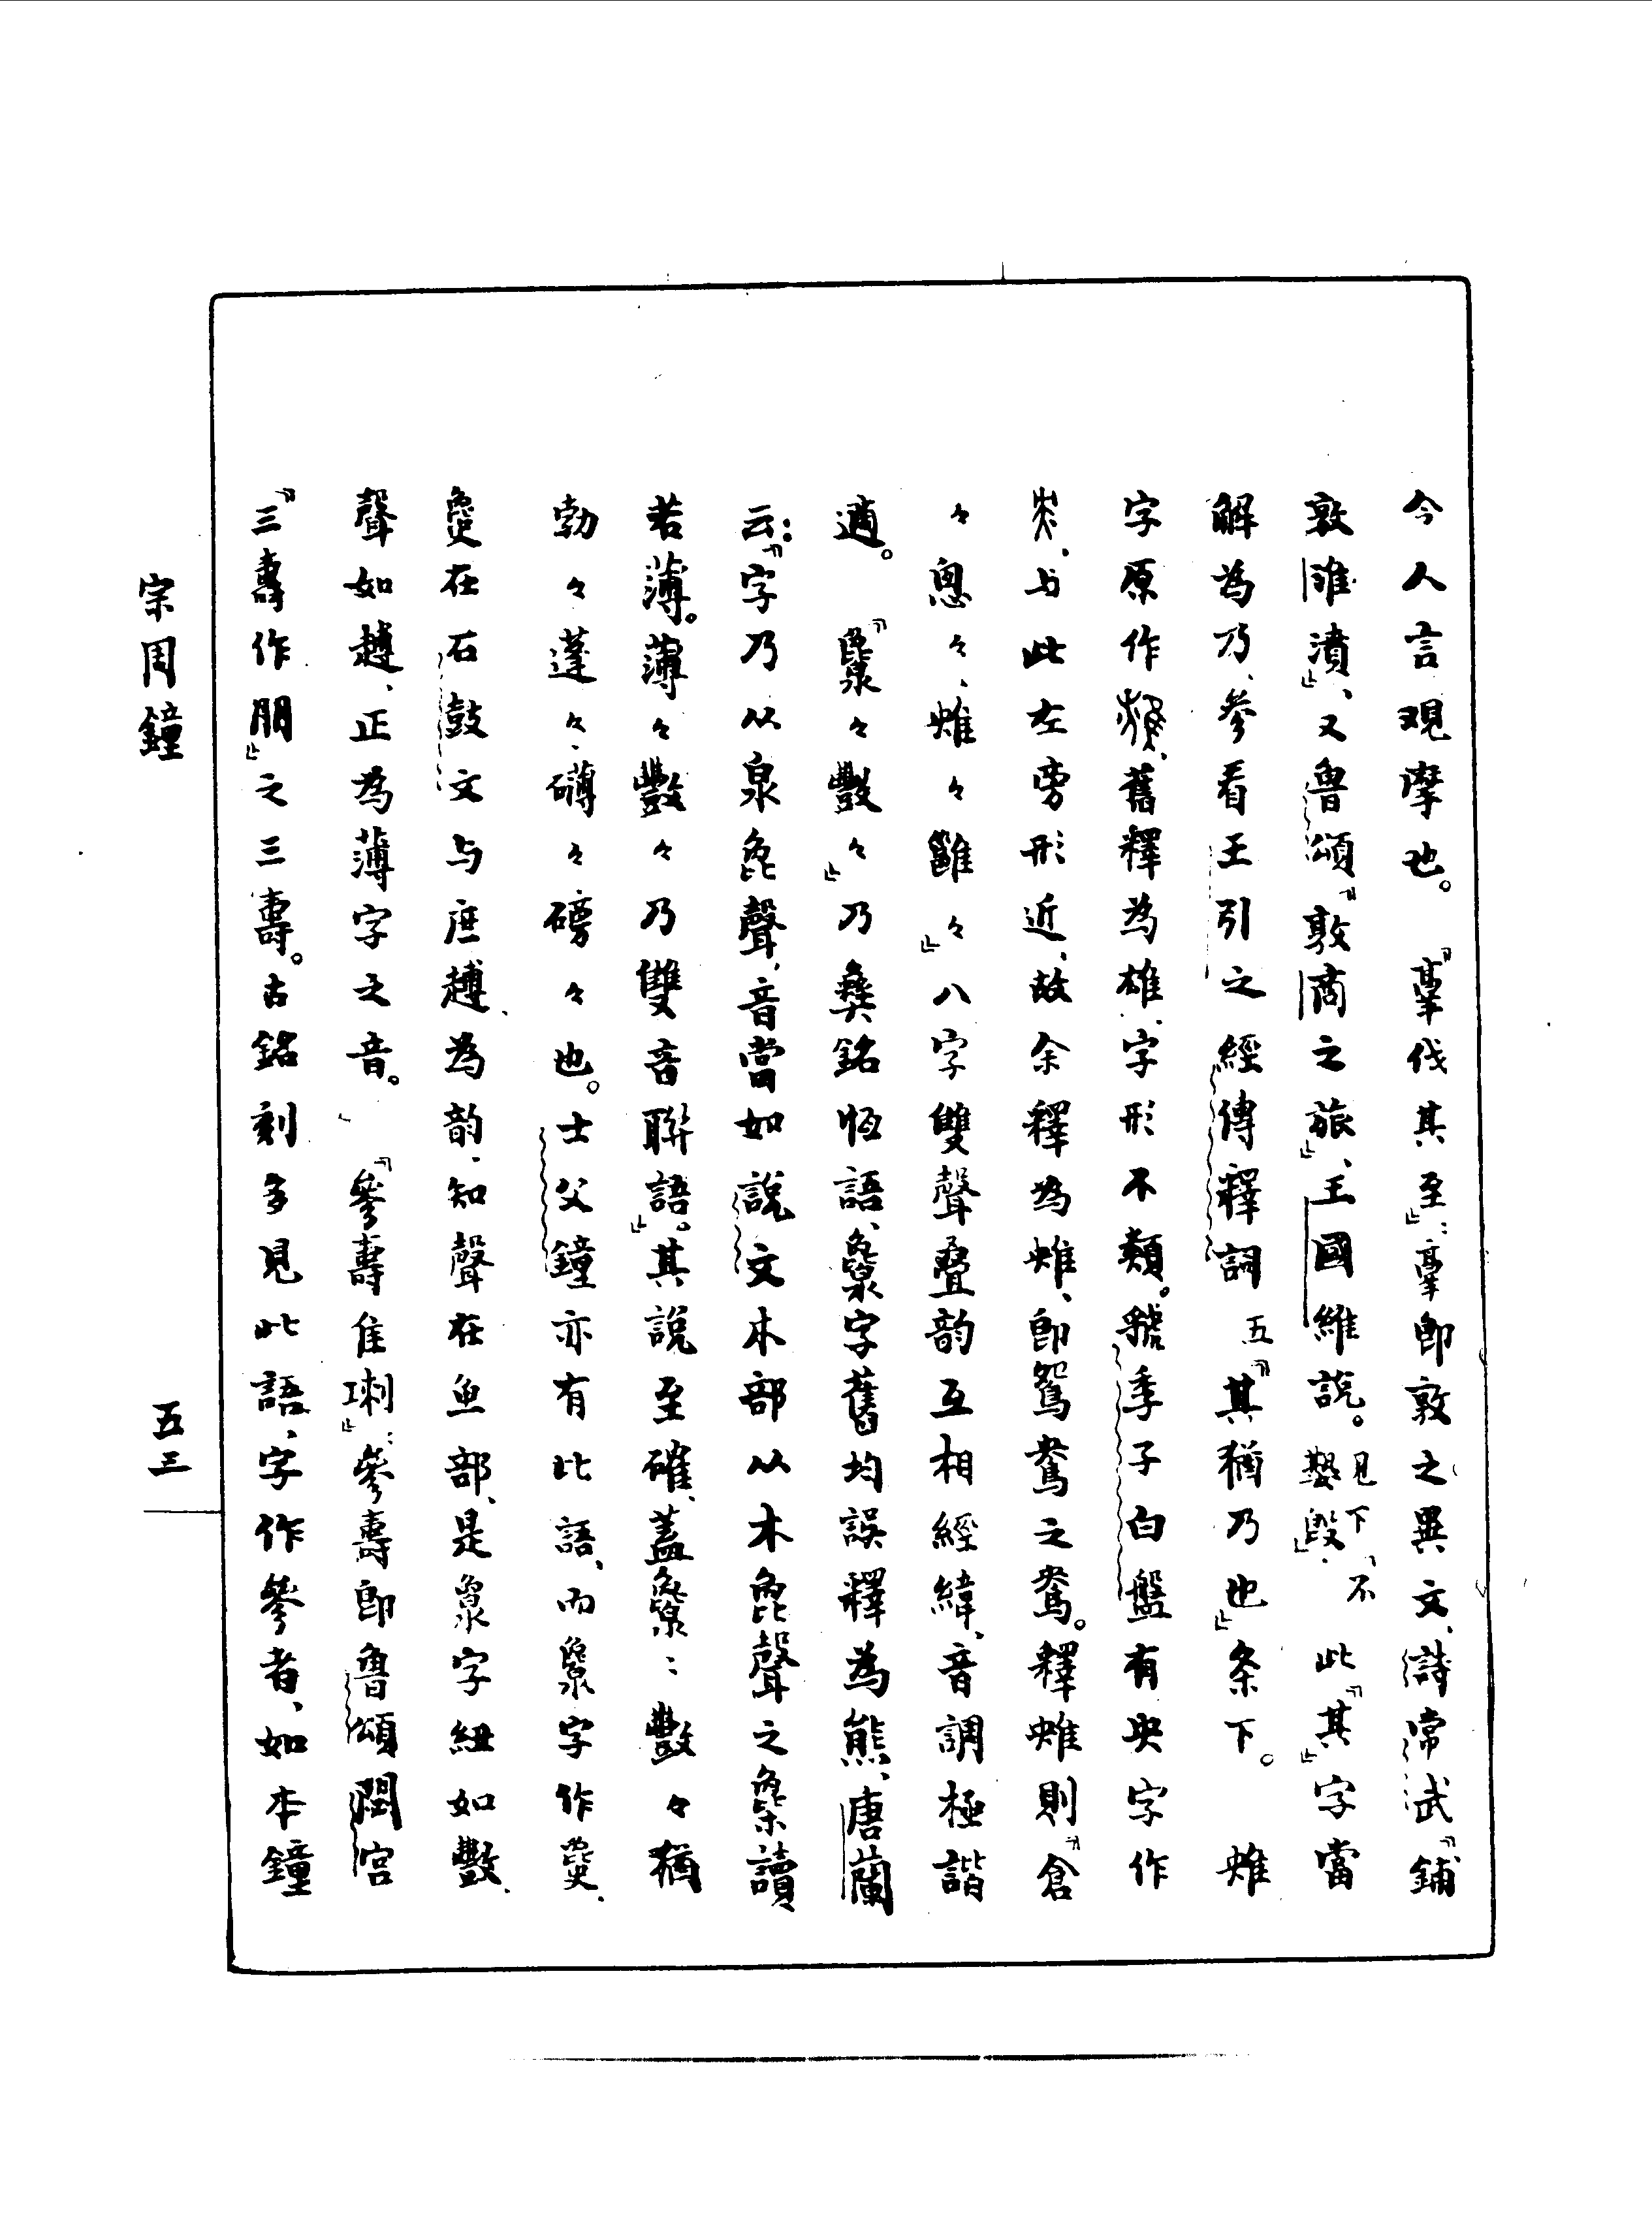 今人言觀摩也。「𦎫伐其至」：𦎫即敦之異文、詩常武「鋪
敦淮濆」、又魯頌「敦商之旅」、王國維說。見下「不𡢁𣪘」。此「其」字當
解為乃、參看王引之經傳釋詞五「其猶乃也」条下。䧹
字原作、舊釋為雄、字形不類。虢季子白盤有央字作
、与此左旁形近、故余釋為䧹、即鴛鴦之鴦。釋䧹則「倉
々恖々、䧹々雝々」八字雙聲疊韵互相經緯、音調極諧
適。「𪚔々數々」乃彝銘恆語、𪚔字舊均誤釋為熊、唐蘭
云：「字乃从泉㲋聲、音當如說文木部从木㲋聲之㯱讀
若薄。薄々數々乃雙音聯語」。其說至確、蓋𪚔：數々猶
勃々蓬々、礴々磅々也。士父鐘亦有此語、而𪚔字作㲋、
㲋在石鼓文与庶趩為韵、知聲在魚部、是𪚔字紐如數、
聲如趩、正為薄字之音。「參壽隹琍」：參壽即魯頌閟宮
「三壽作朋」之三壽。古銘刻多見此語、字作參者、如本鐘
宗周鐘
五三